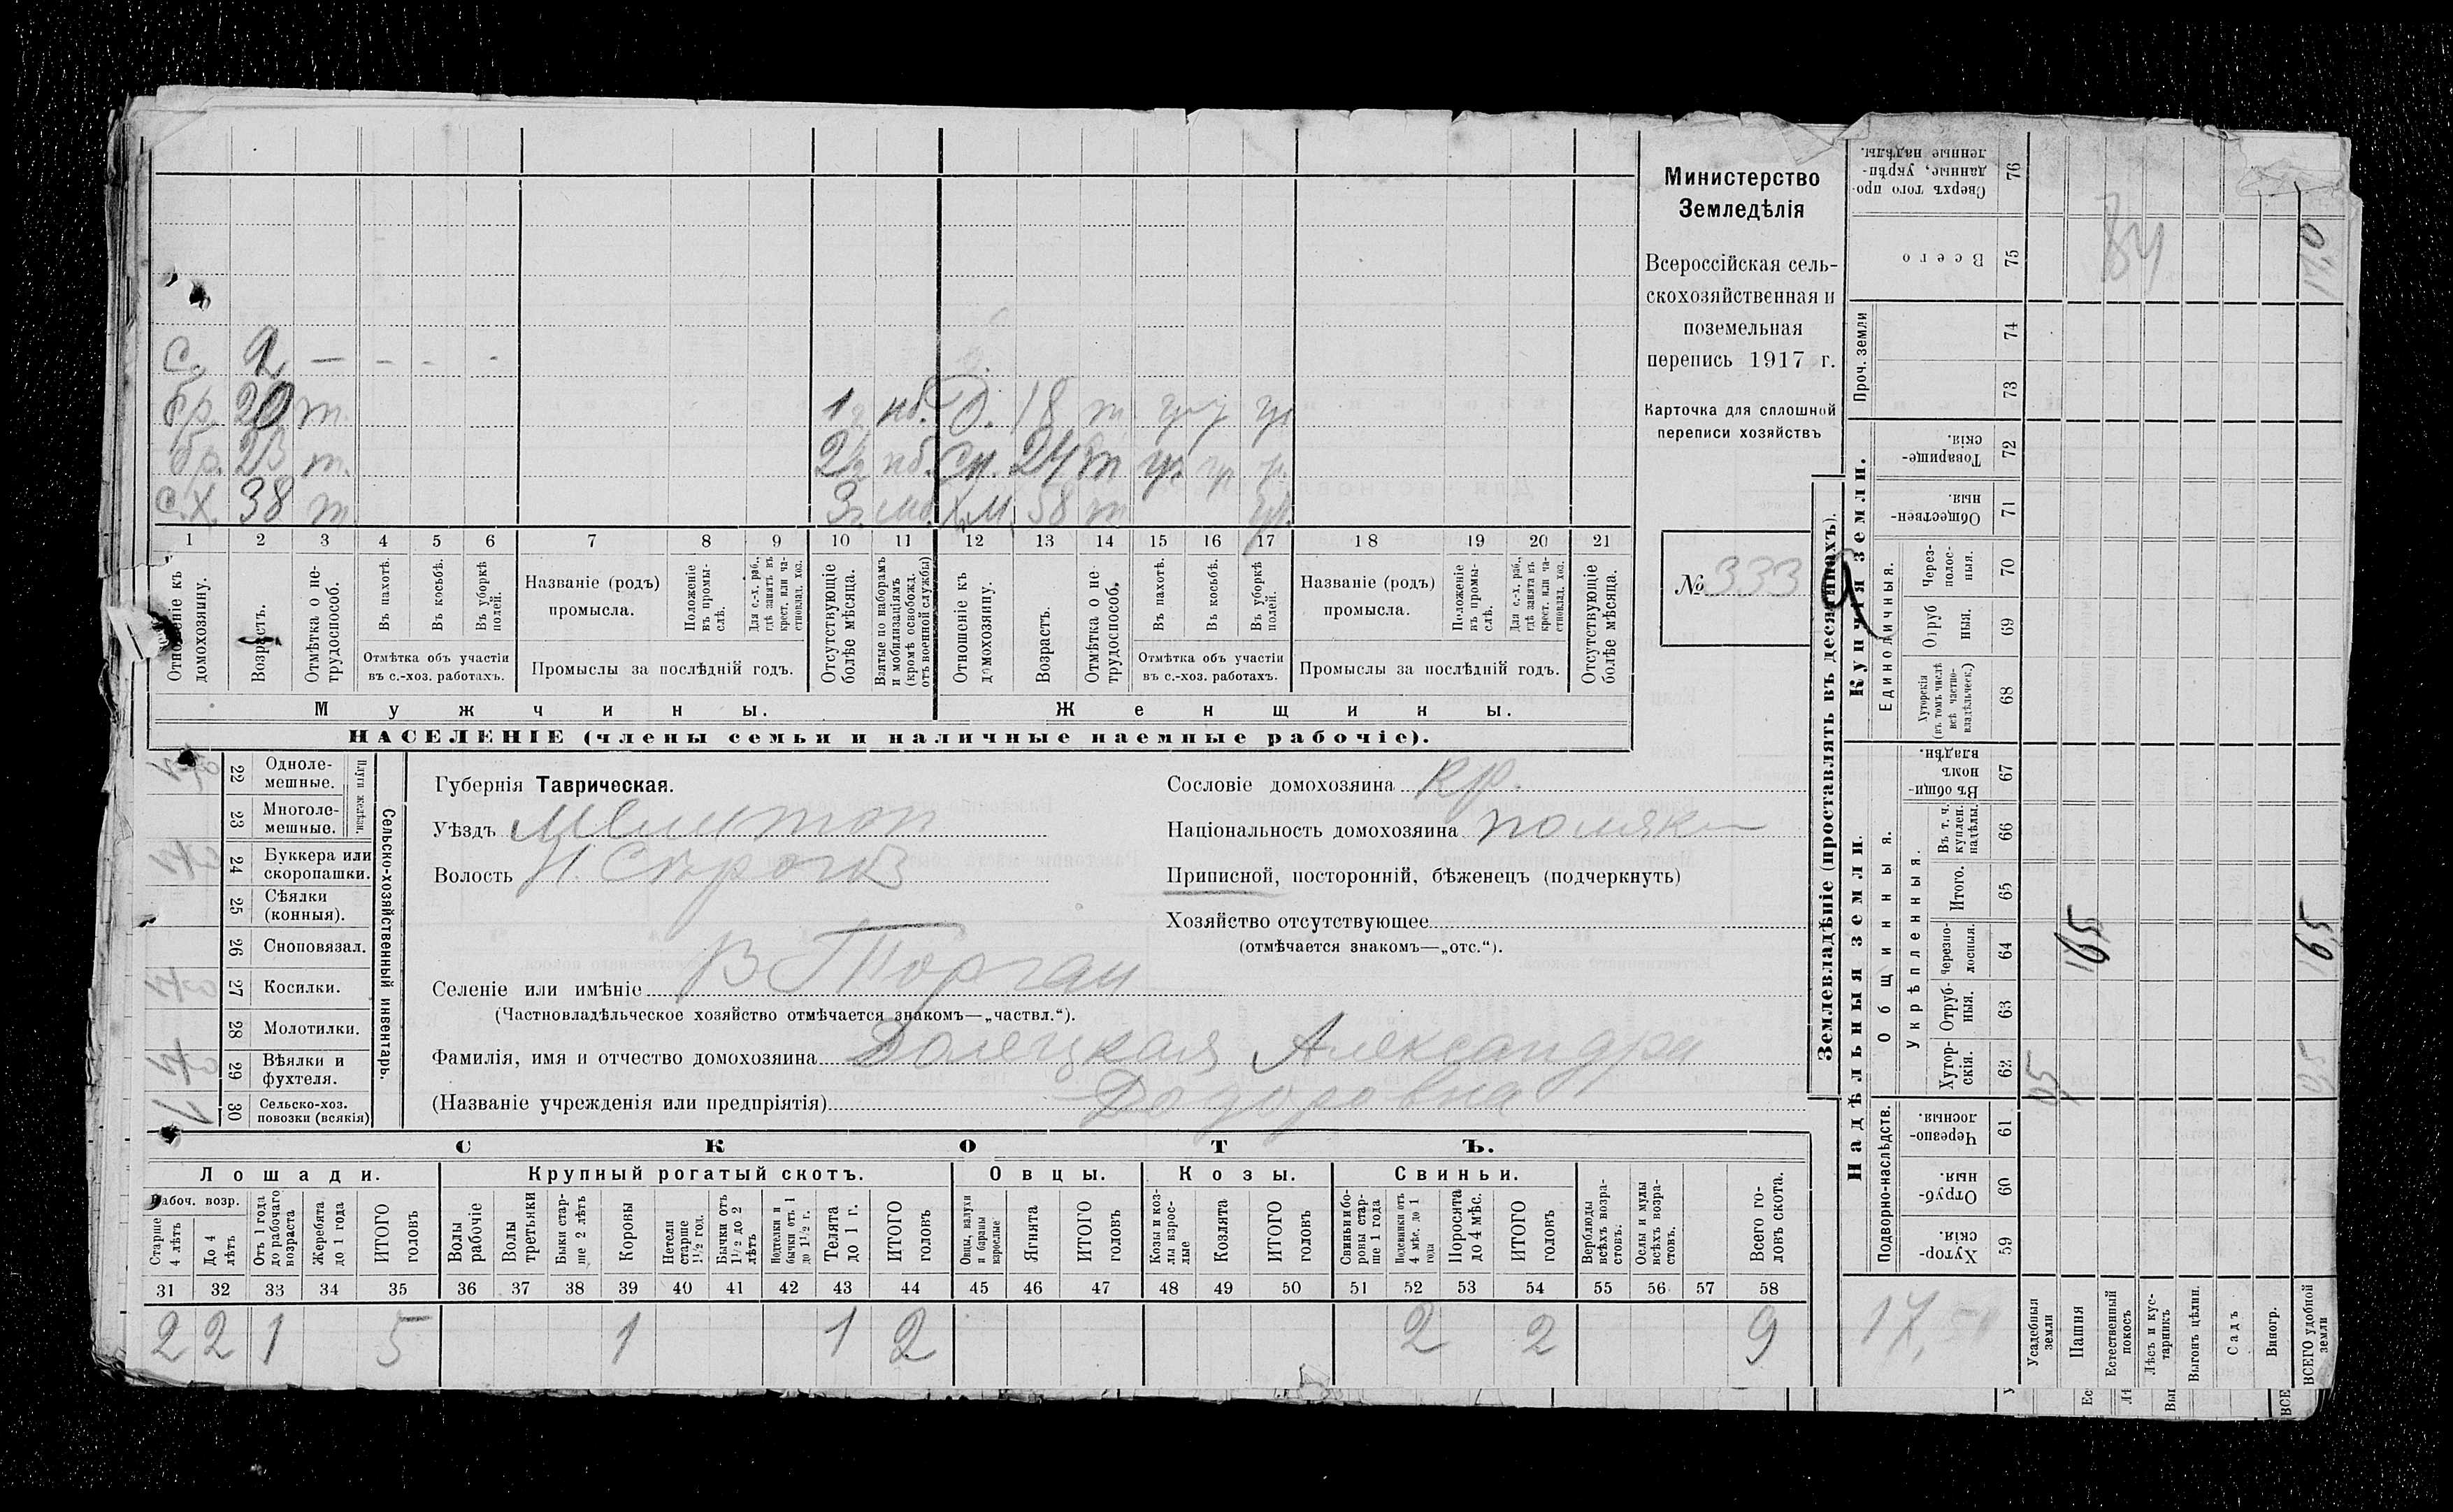 с. 2 — - - -
бр. 20 т. 1 г. нб. д. 18 т уч уч уч
бр. 23 т. 2 г. нб. сн. 24 т уч. уч
с.х. 38 т 3 г. Х.М. 58 т уч.
1 2 3 4 5 6 7 8 9 10 11 12 13 14 15 16 17 18 19 20 21
Отношеніе къ домохозяину.
Возрастъ.
Отмѣтка о не- трудоспособ.
Въ пахотѣ.
Въ косьбѣ.
Въ уборкѣ полей.
Отмѣтка объ участіи
въ с.-хоз. работахъ.
Названіе (родъ)
промысла.
Положеніе въ промы- слѣ.
Для с.-х. раб., гдѣ занятъ въ крест. или ча- стновлад. хоз.
Промыслы за послѣдній годъ.
Отсутствующіе болѣе мѣсяца.
Взятые по наборамъ и мобилизаціямъ (кромѣ освобожд. отъ военной службы)
Отношеніе къ домохозяину.
Возрастъ.
Отмѣтка о не- трудоспособ.
Въ пахотѣ.
Въ косьбѣ.
Въ уборкѣ полей.
Отмѣтка объ участіи
въ с.-хоз. работахъ.
Названіе (родъ)
промысла.
Положеніе въ промы- слѣ.
Для с.-х. раб., гдѣ занята въ крест. или ча- стновлад. хоз.
Промыслы за послѣдній годъ.
Отсутствующіе болѣе мѣсяца.
Мужчины.
Женщины.
НАСЕЛЕНІЕ (члены семьи и наличные наемные рабочіе).
Министерство
Земледѣлія
Всероссійская сель-
скохозяйственная и
поземельная
перепись 1917 г.
Карточка для сплошной
переписи хозяйствъ
№ 333
22 Одноле- мешные.
23 Многоле- мешные.
Плуги желѣзн.
24 Буккера или скоропашки.
25 Сѣялки (конныя).
26 Сноповязал.
27 Косилки.
28 Молотилки.
29 Вѣялки и фухтеля.
30 Сельско-хоз. повозки (всякія)
1
Сельско-хозяйственный инвентарь.
Губернія Таврическая.
Уѣздъ Мелитоп
Волость Н. Сѣрогоз
Селеніе или имѣніе В Торгаи
(Частновладѣльческое хозяйство отмѣчается знакомъ—„частвл.“).
Фамилія, имя и отчество домохозяина Долецкая Александра
(Названіе учрежденія или предпріятія) Додоровна
Сословіе домохозяина кр.
Національность домохозяина поляки
Приписной, посторонній, бѣженецъ (подчеркнуть)
Хозяйство отсутствующее
(отмѣчается знакомъ—„отс.“).
СКОТЪ.
Лошади. Крупный рогатый скотъ. Овцы. Козы. Свиньи.
Рабоч. возр.
Старше 4 лѣтъ
До 4 лѣтъ
Отъ 1 года до рабочаго возраста
Жеребята до 1 года
ИТОГО головъ
Волы рабочіе
Волы третьяки
Быки стар- ше 2 лѣтъ
Коровы
Нетели старше 1½ год.
Бычки отъ 1½ до 2 лѣтъ
Подтелки и бычки отъ 1 до 1½ г.
Телята до 1 г.
ИТОГО головъ
Овцы, валухи и бараны взрослые
Ягнята
ИТОГО головъ
Козы и коз- лы взрос- лые
Козлята
ИТОГО головъ
Свиньи и бо- роны стар- ше 1 года
Подсвинки отъ 4 мѣс. до 1 года
Поросята до 4 мѣс.
ИТОГО головъ
Верблюды всѣхъ возра- стовъ.
Ослы и мулы всѣхъ возра- стовъ.
Всего го- ловъ скота.
31 32 33 34 35 36 37 38 39 40 41 42 43 44 45 46 47 48 49 50 51 52 53 54 55 56 57 58
2 2 1 5 1 1 2 2 2 9
Землевладѣніе (проставлять въ десятинахъ).
Купчія земли.
Надѣльныя земли.
Проч. земли
Единоличныя.
Общинныя.
Укрѣпленныя.
Подворно-наслѣдств.
Сверхъ того про- данные, укрѣп- ленные надѣлы. 76
Всего 75
74
73
Товарище- скія. 72
Обществен- ныя. 71
Через- полос- ныя. 70
Отруб ныя. 69
Хуторскія (въ томъ числѣ всѣ частно- владѣльческ.) 68
Въ общи номъ владѣн. 67
Въ т. ч. куплен. надѣлы. 66
Итого. 65
Черезпо- лосныя. 64
Отруб- ныя. 63
Хутор- скія. 62
Черезпо- лосныя. 61
Отруб- ныя. 60
Хутор- скія. 59
84
165
165
17,
Усадебныя земли
Пашня
Естественный покосъ
Лѣсъ и кус- тарникъ
Выгонъ цѣлин.
Садъ
Виногр.
ВСЕГО удобной земли